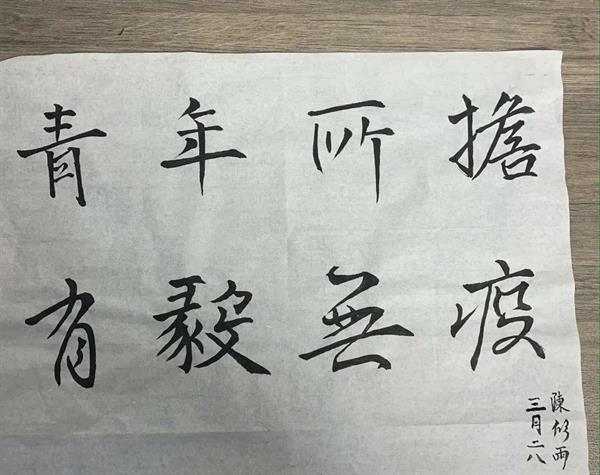 青年所擔
有毅無疫
陳修雨
三月二八